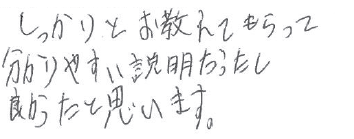 しっかりとお教えてもらって
分かりやすい説明だったし
良かったと思います。